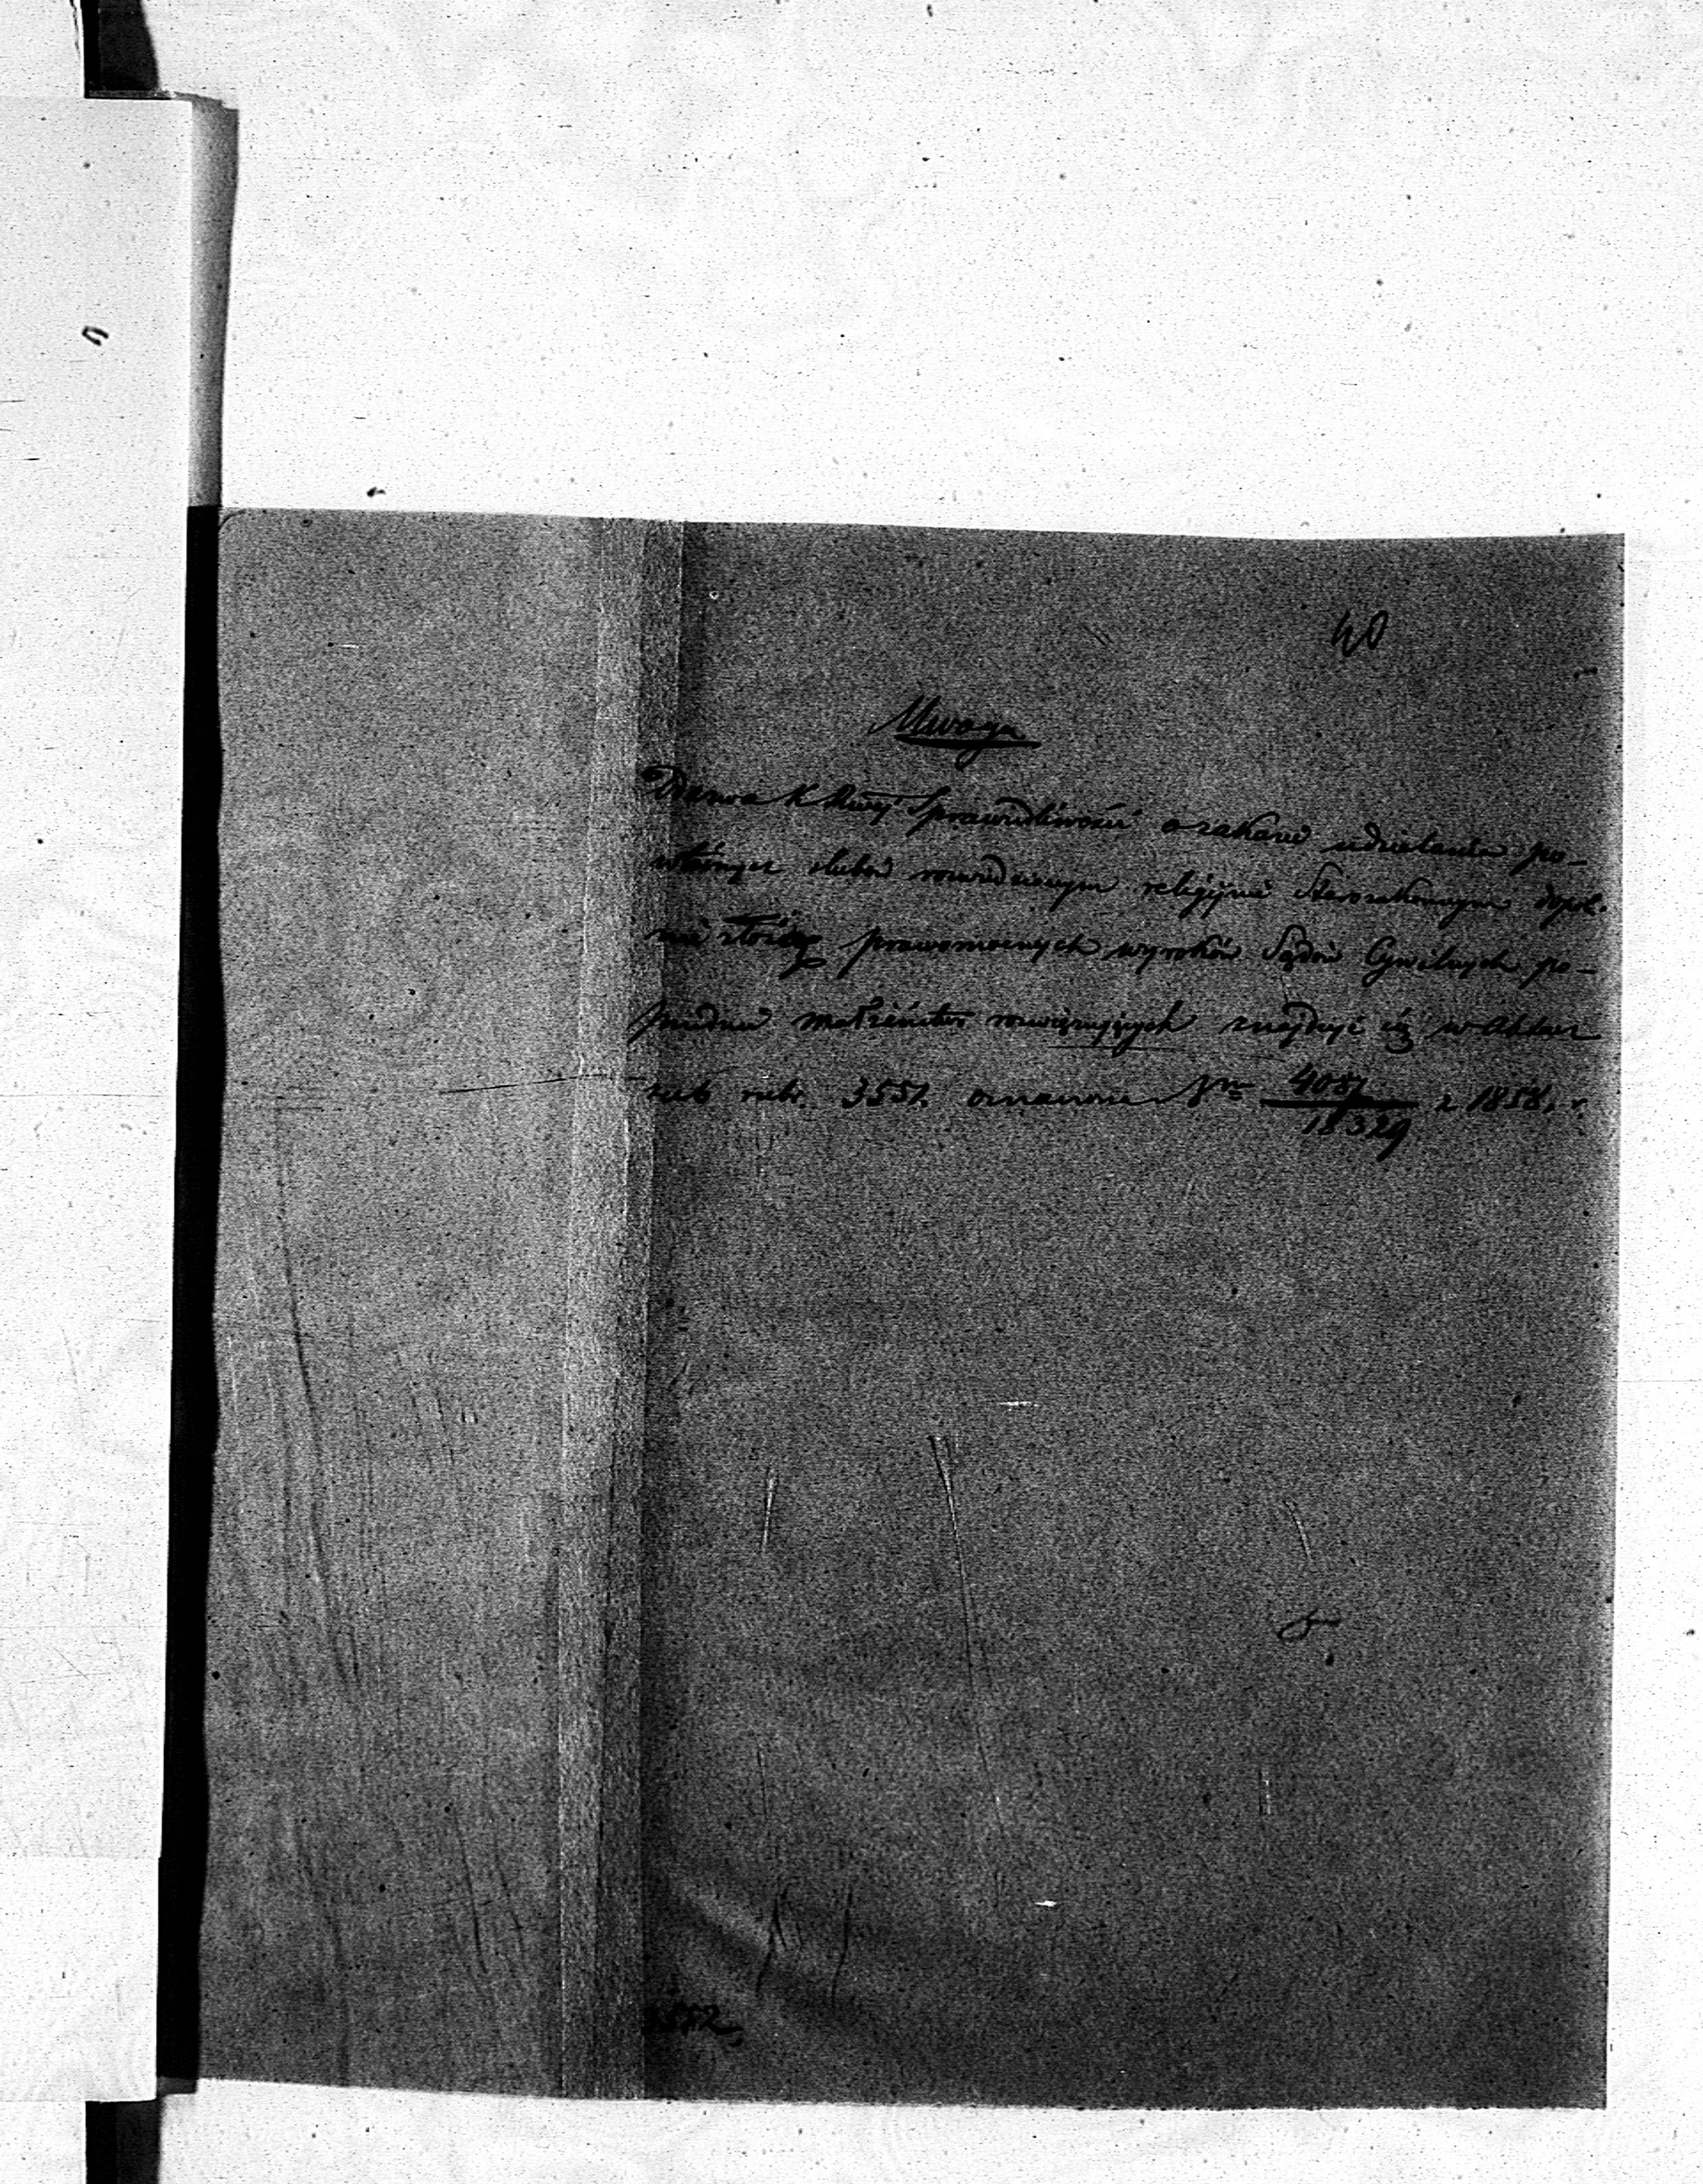 40
Uwaga
Pismo K Rząj Sprawiedliwości o zakazie udzielania po-
wtórnych ślubów rozwiedzionym religijnie Starozakonnym dopó-
prawomocnych wyroków Sądów Cywilnych po-
przednie małżeństwo rozwiązujących znajduje się w Aktach
rubr. 3551. oznaczone Nr 4081/18329 z 1858. r.
3572.